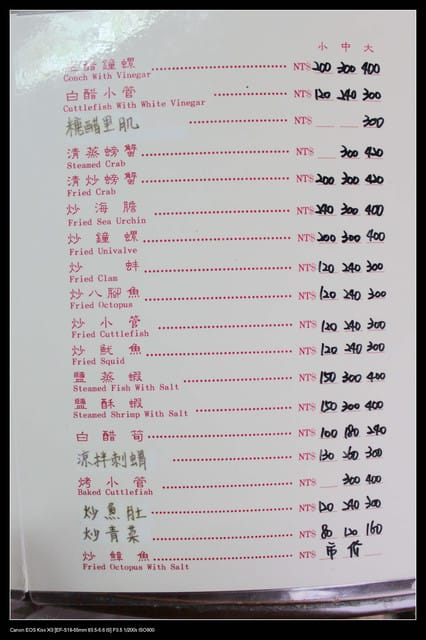 小 中 大
醋鐘螺 NT$ 200 300 400
Conch With Vinegar
白醋小管 NT$ 120 240 300
Cuttlefish With White Vinegar
糖醋里肌 NT$ 300
清蒸螃蟹 NT$ 300 420
Steamed Crab
清炒螃蟹 NT$ 200 300 420
Fried Crab
炒海膽 NT$ 240 300 400
Fried Sea Urchin
炒鐘螺 NT$ 200 300 400
Fried Univalve
炒蚌 NT$ 120 240 300
Fried Clam
炒八腳魚 NT$ 120 240 300
Fried Octopus
炒小管 NT$ 120 240 300
Fried Cuttlefish
炒魷魚 NT$ 120 240 300
Fried Squid
鹽蒸蝦 NT$ 150 300 400
Steamed Fish With Salt
鹽酥蝦 NT$ 150 300 400
Steamed Shrimp With Salt
白醋筍 NT$ 100 180 240
涼拌刺 NT$ 130 260 300
烤小管 NT$ 300 400
Baked Cuttlefish
炒魚肚 NT$ 120 240 300
炒青菜 NT$ 80 120 160
炒鱆魚 NT$ 市價
Fried Octopus With Salt
Canon EOS Kiss X3 [EF-S18-55mm f/3.5-5.6 IS] F3.5 1/200s ISO800